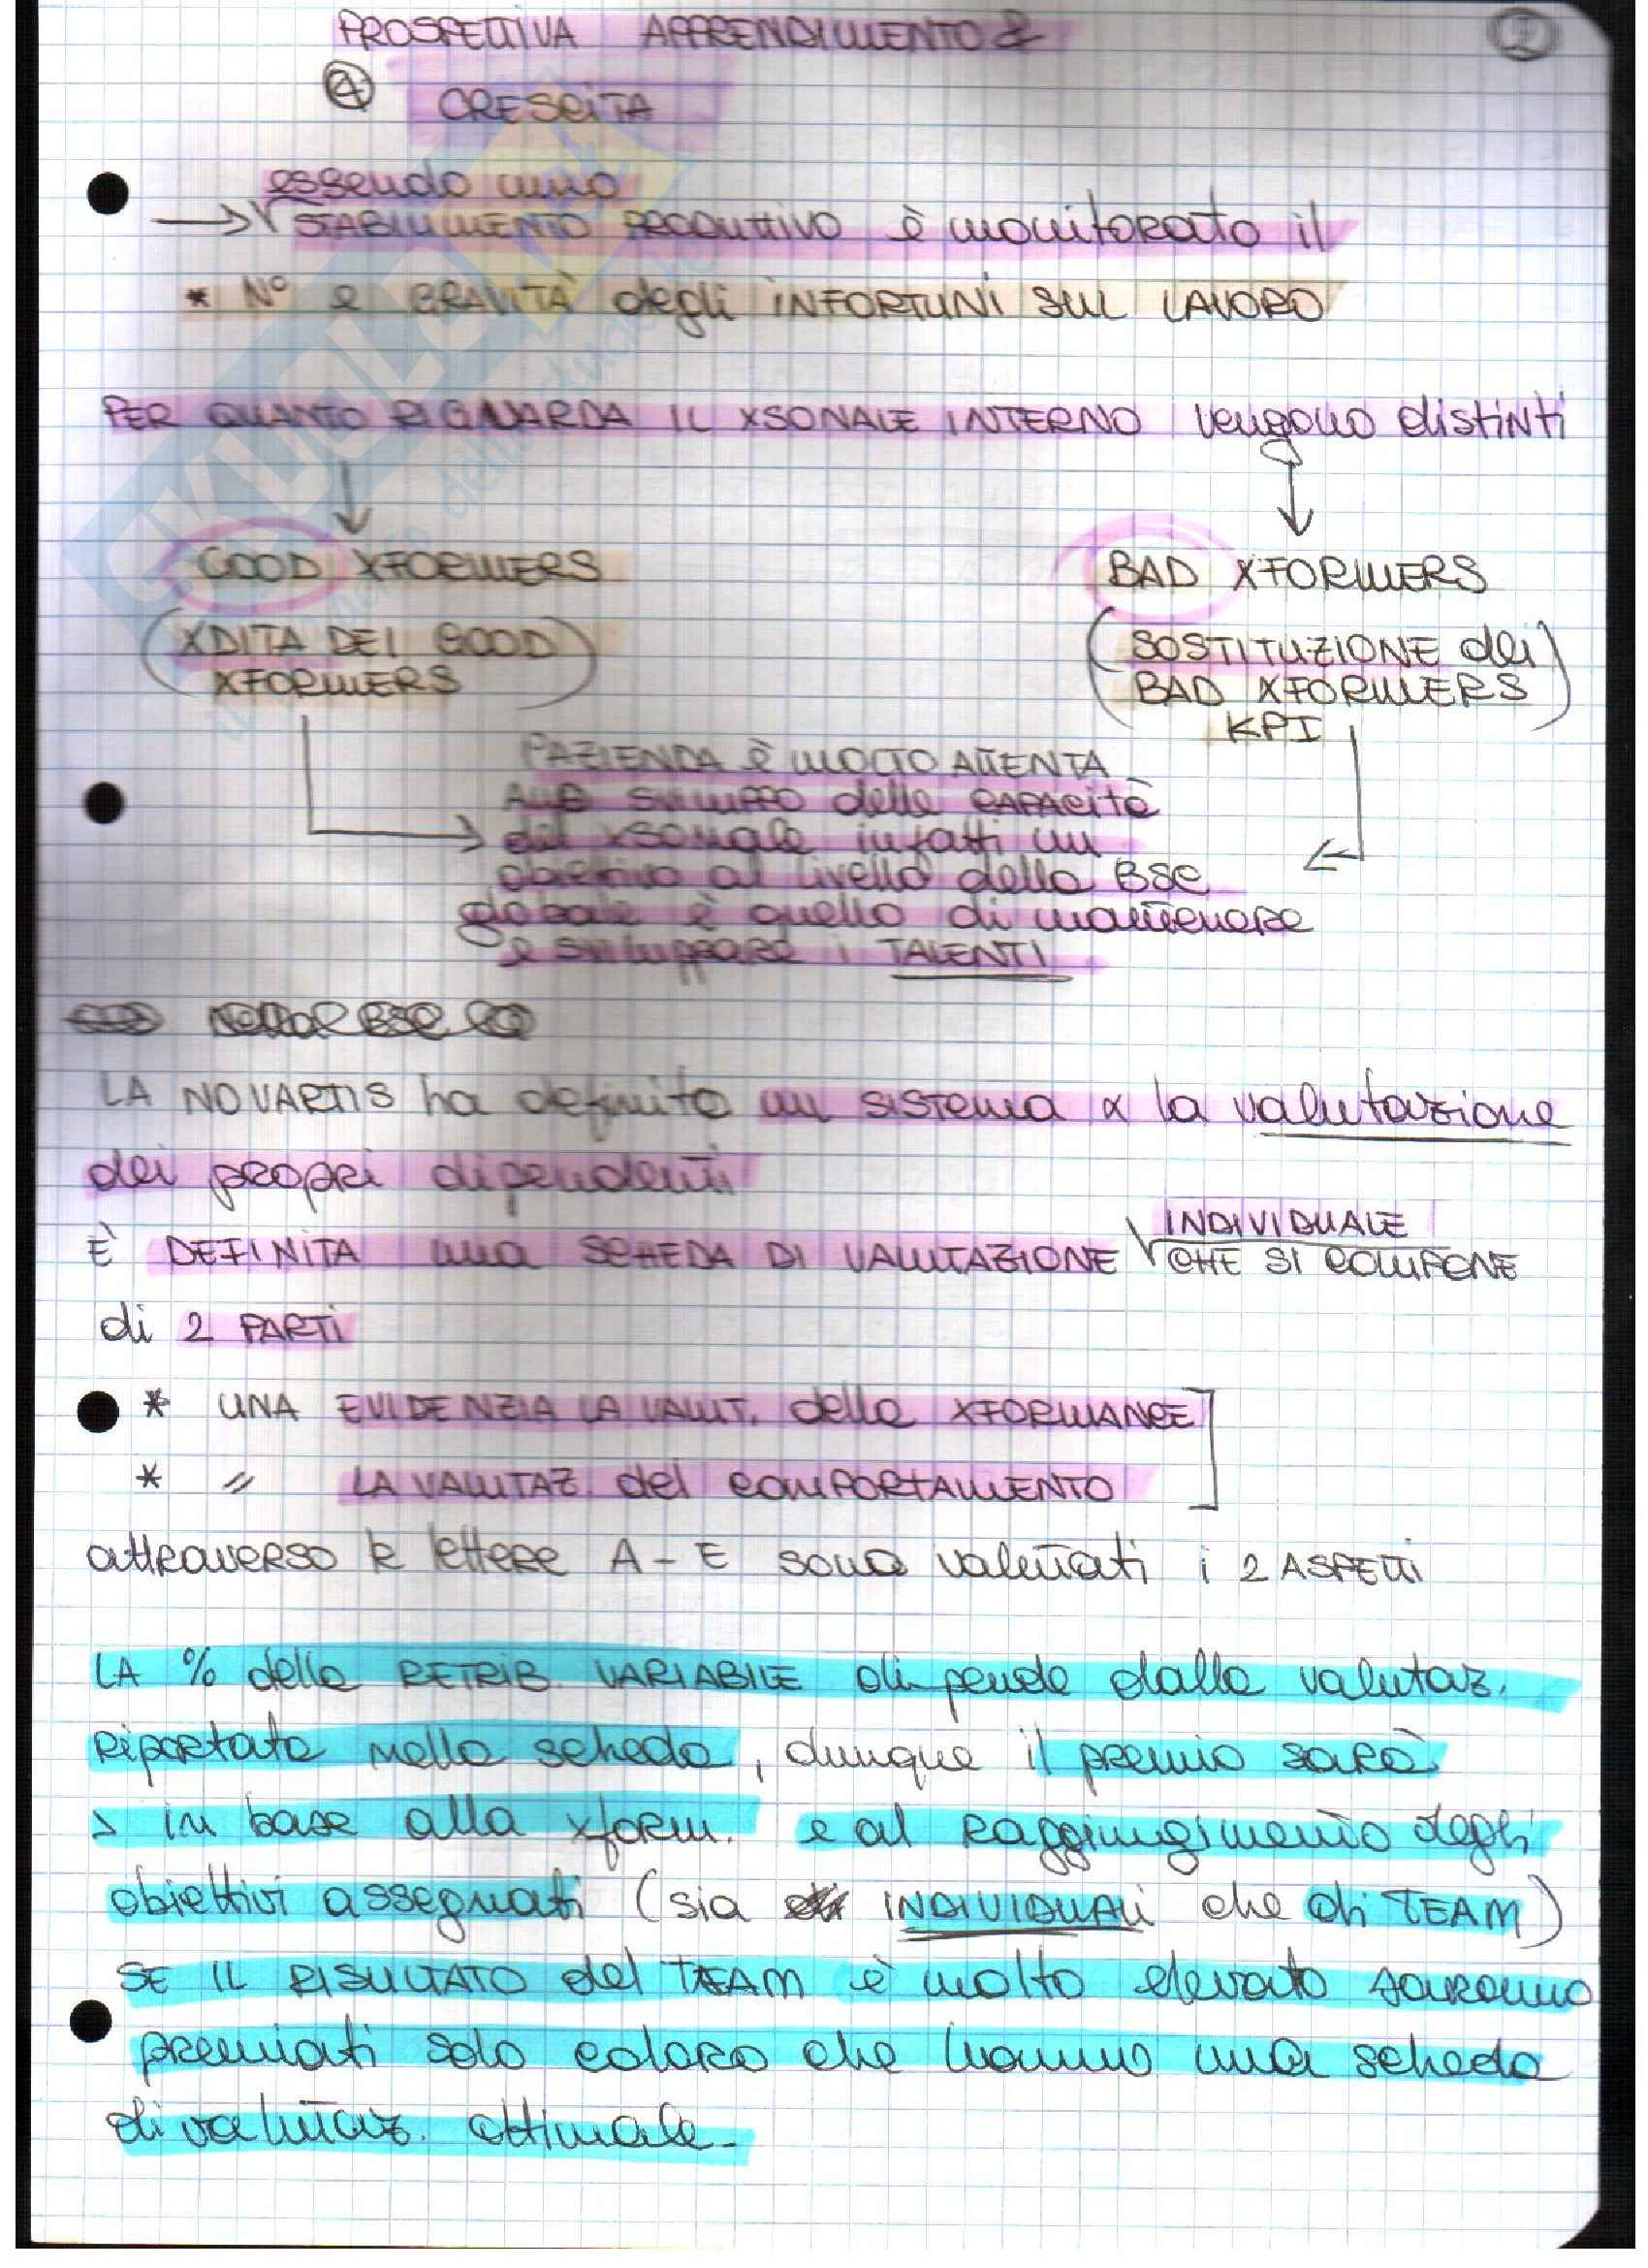 PROSPETTIVA APPRENDIMENTO &
④ CRESCITA
essendo uno
→ STABILIMENTO PRODUTTIVO è monitorato il
* N° e GRAVITÀ degli INFORTUNI SUL LAVORO
PER QUANTO RIGUARDA IL XSONALE INTERNO vengono distinti
GOOD XFORMERS
BAD XFORMERS
(XDITA DEI GOOD
XFORMERS)
(SOSTITUZIONE dei
BAD XFORMERS)
KPI
l'AZIENDA è MOLTO ATTENTA
ALLO SVILUPPO delle CAPACità
del xsonale infatti un
obiettivo al livello della BSC
globale è quello di mantenere
e sviluppare i TALENTI
LA NOVARTIS ha definito un sistema x la valutazione
dei propri dipendenti
È DEFINITA una SCHEDA DI VALUTAZIONE INDIVIDUALE CHE SI COMPONE
di 2 PARTI
* UNA EVIDENZIA LA VALUT. della XFORMANCE
* " LA VALUTAZ. del COMPORTAMENTO
attraverso le lettere A - E sono valutati i 2 ASPETTI
LA % della RETRIB. VARIABILE dipende dalla valutaz.
Riportata nella scheda, dunque il premio sarà
> in base alla xform. e al raggiungimento degli
obiettivi assegnati (sia INDIVIDUALI che di TEAM)
SE IL RISULTATO del TEAM è molto elevato saranno
premiati solo coloro che hanno una scheda
di valutaz. ottimale.